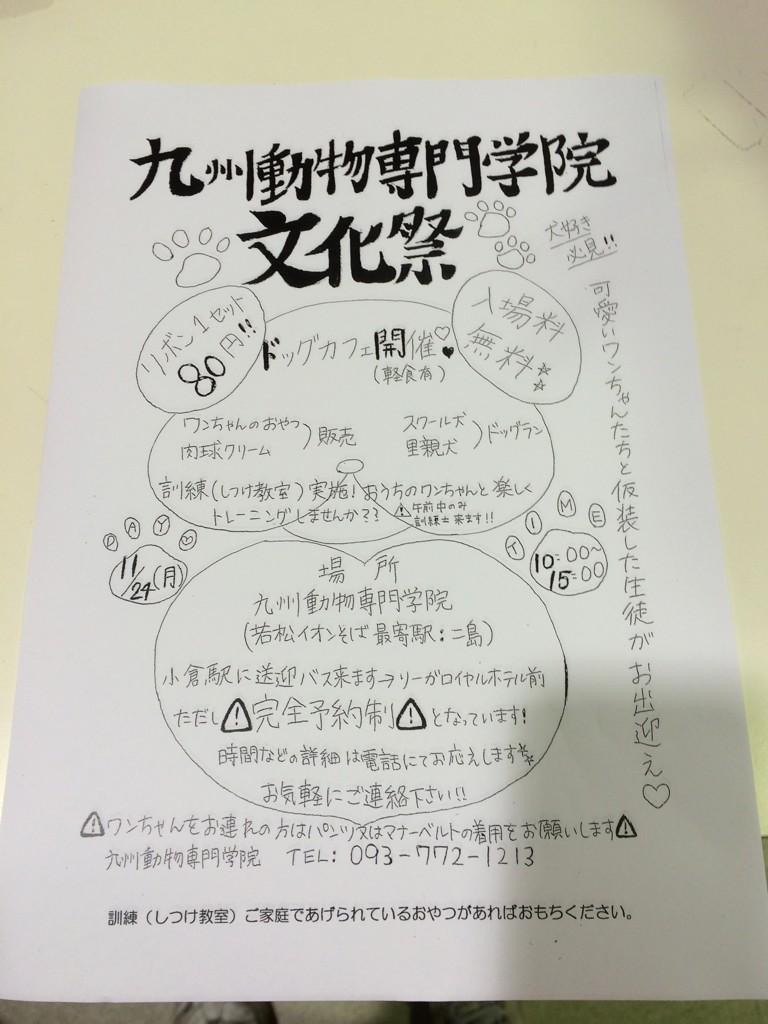 九州動物専門学院
文化祭
犬好き
必見!!
リボン1セット
80円!!
ドッグカフェ開催♡♥
(軽食有)
入場料
無料☆☆
可愛いワンちゃんたちと仮装した生徒がお出迎え♡
ワンちゃんのおやつ
肉球クリーム
)販売
スクール犬
里親犬
)ドッグラン
訓練(しつけ教室)実施!おうちのワンちゃんと楽しく
トレーニングしませんか??
⚠午前中のみ
訓練士来ます!!
DAY♡
11/24(月)
TIME
10:00~
15:00
場所
九州動物専門学院
(若松イオンそば 最寄駅:二島)
小倉駅に送迎バス来ます→リーガロイヤルホテル前
ただし⚠完全予約制⚠となっています!
時間などの詳細は電話にてお応えします☆
お気軽にご連絡下さい!!
⚠ワンちゃんをお連れの方はパンツ又はマナーベルトの着用をお願いします⚠
九州動物専門学院 TEL: 093-772-1213
訓練(しつけ教室)ご家庭であげられているおやつがあればおもちください。